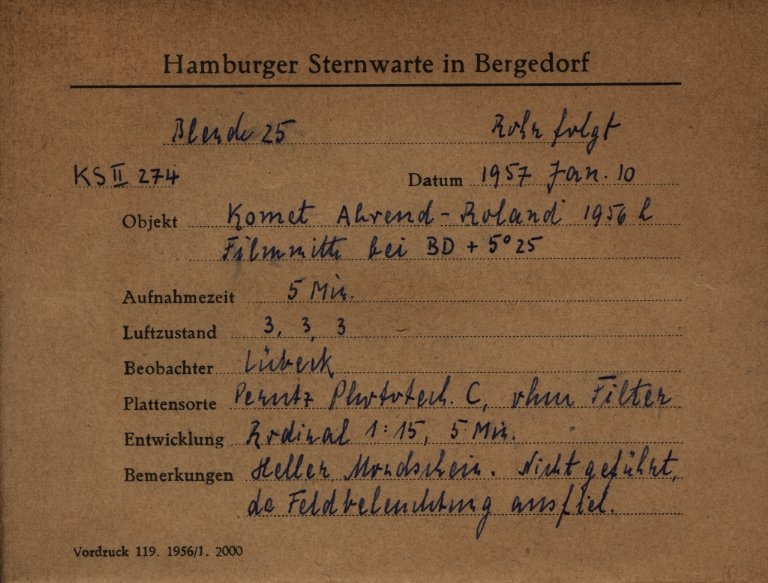 Hamburger Sternwarte in Bergedorf
Blende 25 Rohr folgt
KS II 274 Datum 1957 Jan. 10
Objekt Komet Ahrend-Roland 1956 h
Filmmitte bei BD + 5° 25
Aufnahmezeit 5 Min.
Luftzustand 3, 3, 3
Beobachter Lübeck
Plattensorte Perutz Phototech. C, ohne Filter
Entwicklung Rodinal 1:15, 5 Min.
Bemerkungen Heller Mondschein. Nicht geführt,
da Feldbeleuchtung ausfiel.
Vordruck 119. 1956/1. 2000